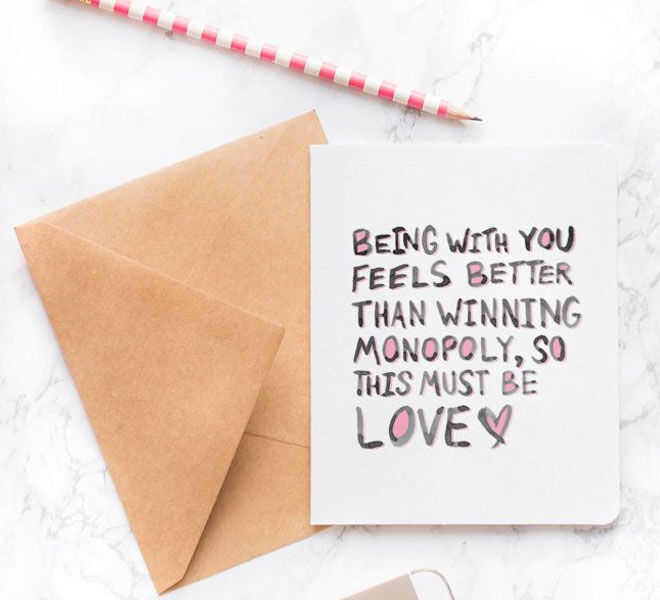 BEING WITH YOU
FEELS BETTER
THAN WINNING
MONOPOLY, SO
THIS MUST BE
LOVE♥